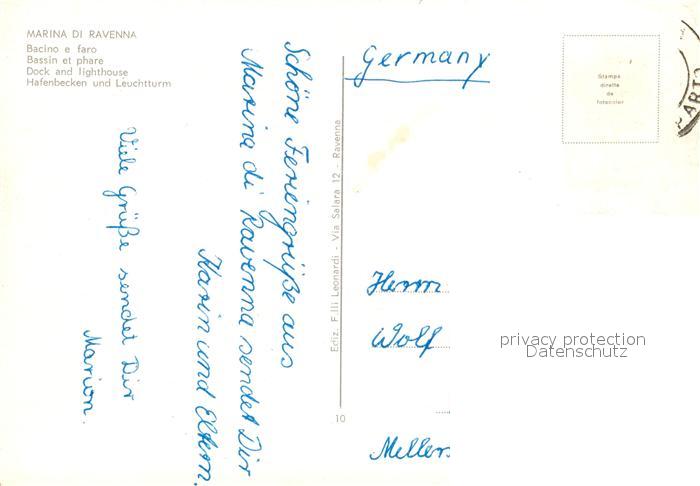 MARINA DI RAVENNA
Bacino e faro
Bassin et phare
Dock and lighthouse
Hafenbecken und Leuchtturm
Schöne Feriengrüße aus
Marina di Ravenna sendet Dir
Karin und Eltern.
Viele Grüße sendet Dir
Marion.
Ediz. F.lli Leonardi - Via Salara 12 - Ravenna
10
Germany
Stampa
diretta
da
fotocolor
Herrn
Wolf
Mellers
privacy protection
Datenschutz